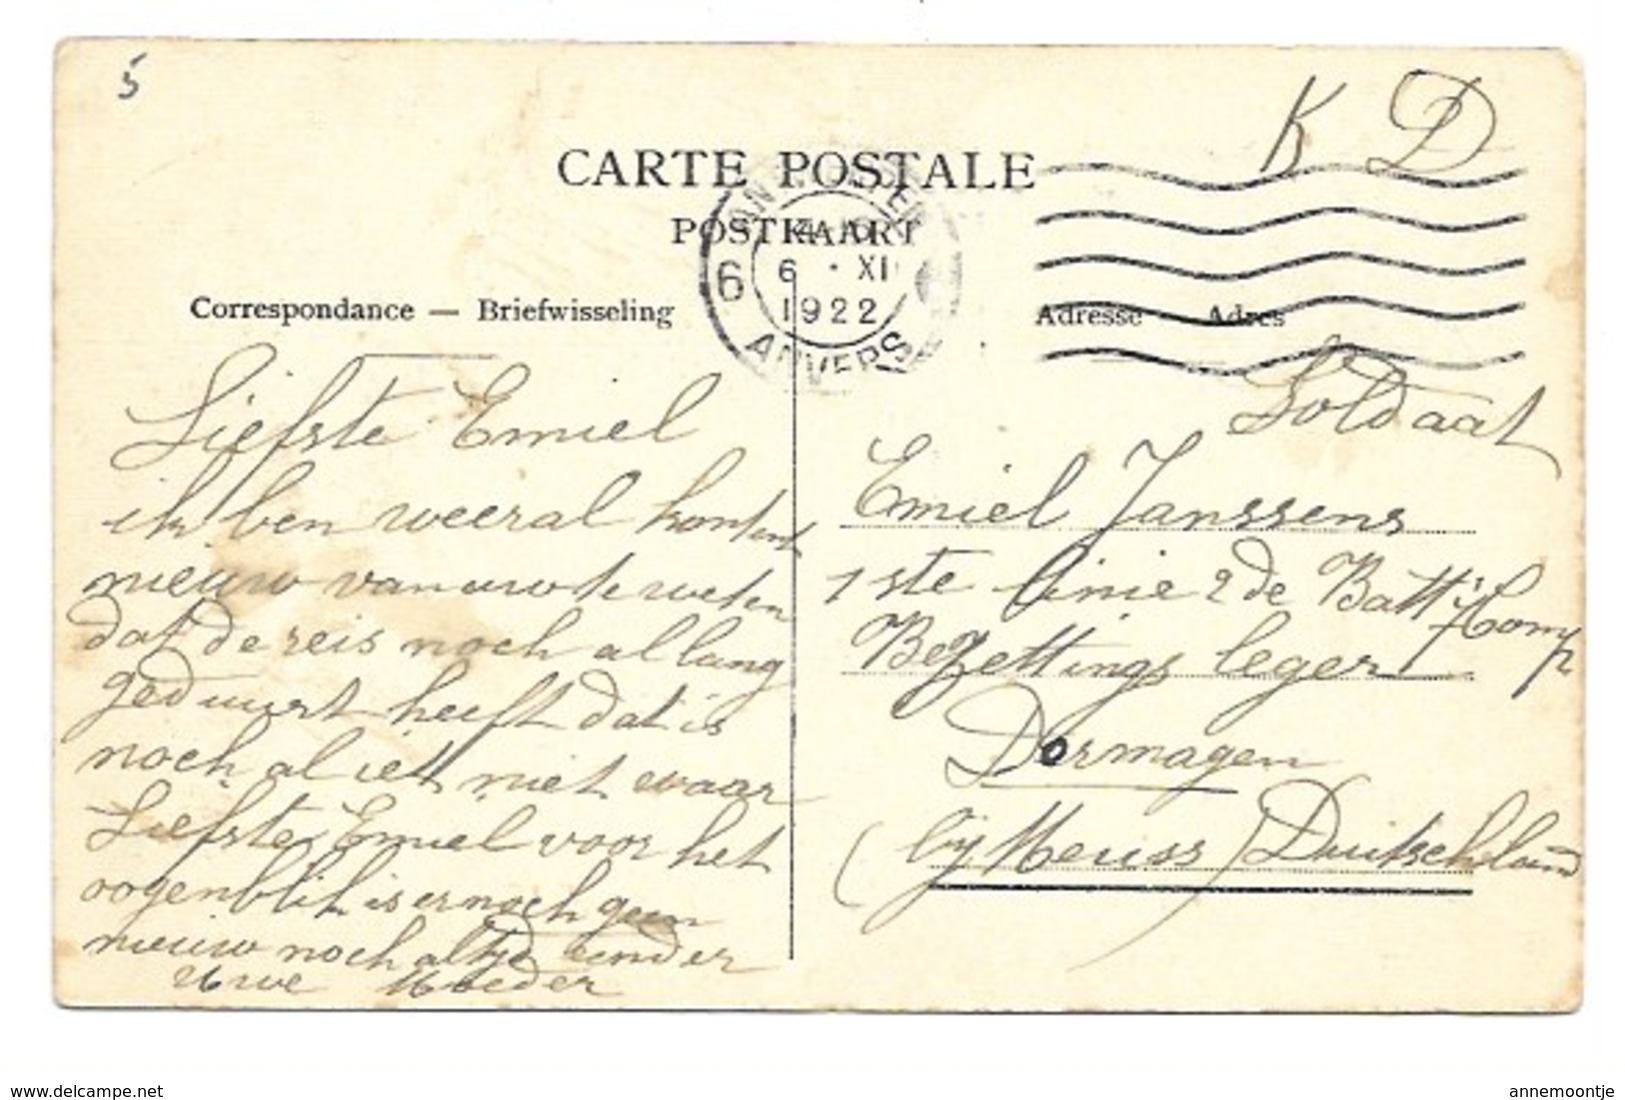 5
K D
CARTE POSTALE
POSTKAART
6
6 · XI
1922
ANVERS
Correspondance — Briefwisseling
Adresse Adres
Liefste Emiel
ik ben weeral kontent
nieuw van uw te weten
dat de reis noch al lang
geduurt heeft dat is
noch al iet niet waar
Liefste Emiel voor het
oogenblik is er noch geen
nieuw noch altyd eender
Uwe Moeder
Soldaat
Emiel Janssens
1ste linie 2de Batt
Comp
Bezettings leger
Dormagen
(by Neuss) Duitschland
www.delcampe.net
annemoontje